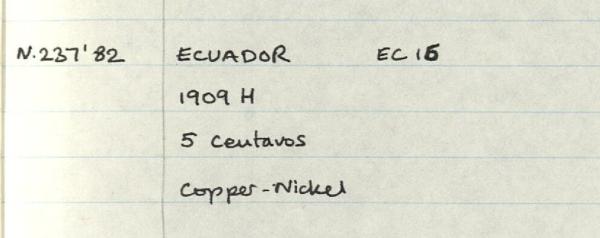 N.237'82 ECUADOR EC 15
1909 H
5 Centavos
Copper-Nickel